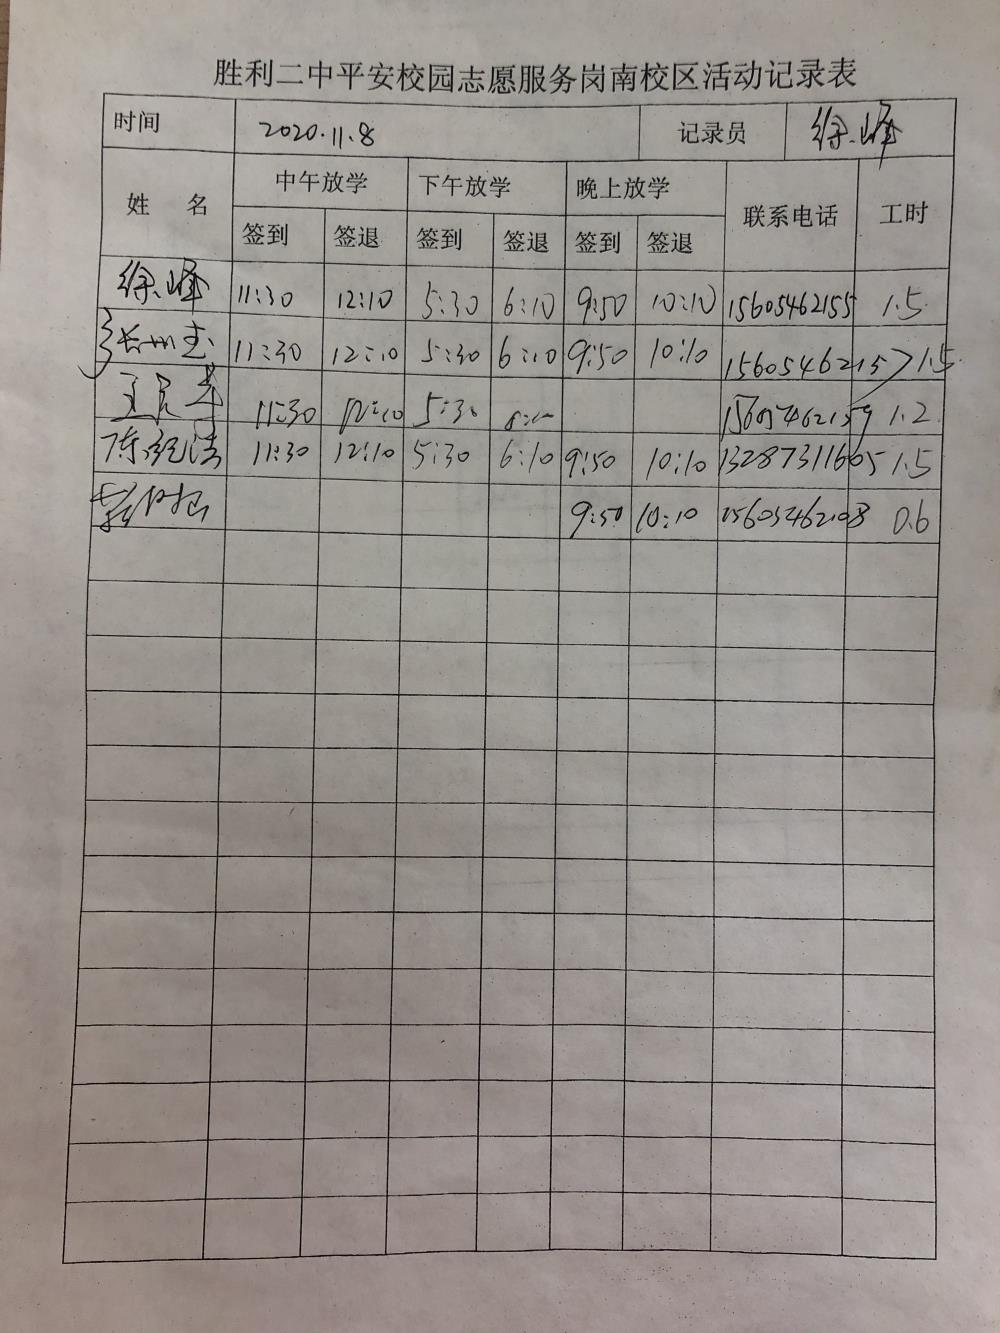 胜利二中平安校园志愿服务岗南校区活动记录表
时间 2020.11.8 记录员 徐峰
姓 名 中午放学 下午放学 晚上放学 联系电话 工时
签到 签退 签到 签退 签到 签退
徐峰 11:30 12:10 5:30 6:10 9:50 10:10 15605462155 1.5
11:30 12:10 5:30 6:10 9:50 10:10 1.5
11:30 12:10 5:30 1.2
陈纪浩 11:30 12:10 5:30 6:10 9:50 10:10 13287311605 1.5
9:50 10:10 15605462108 0.6